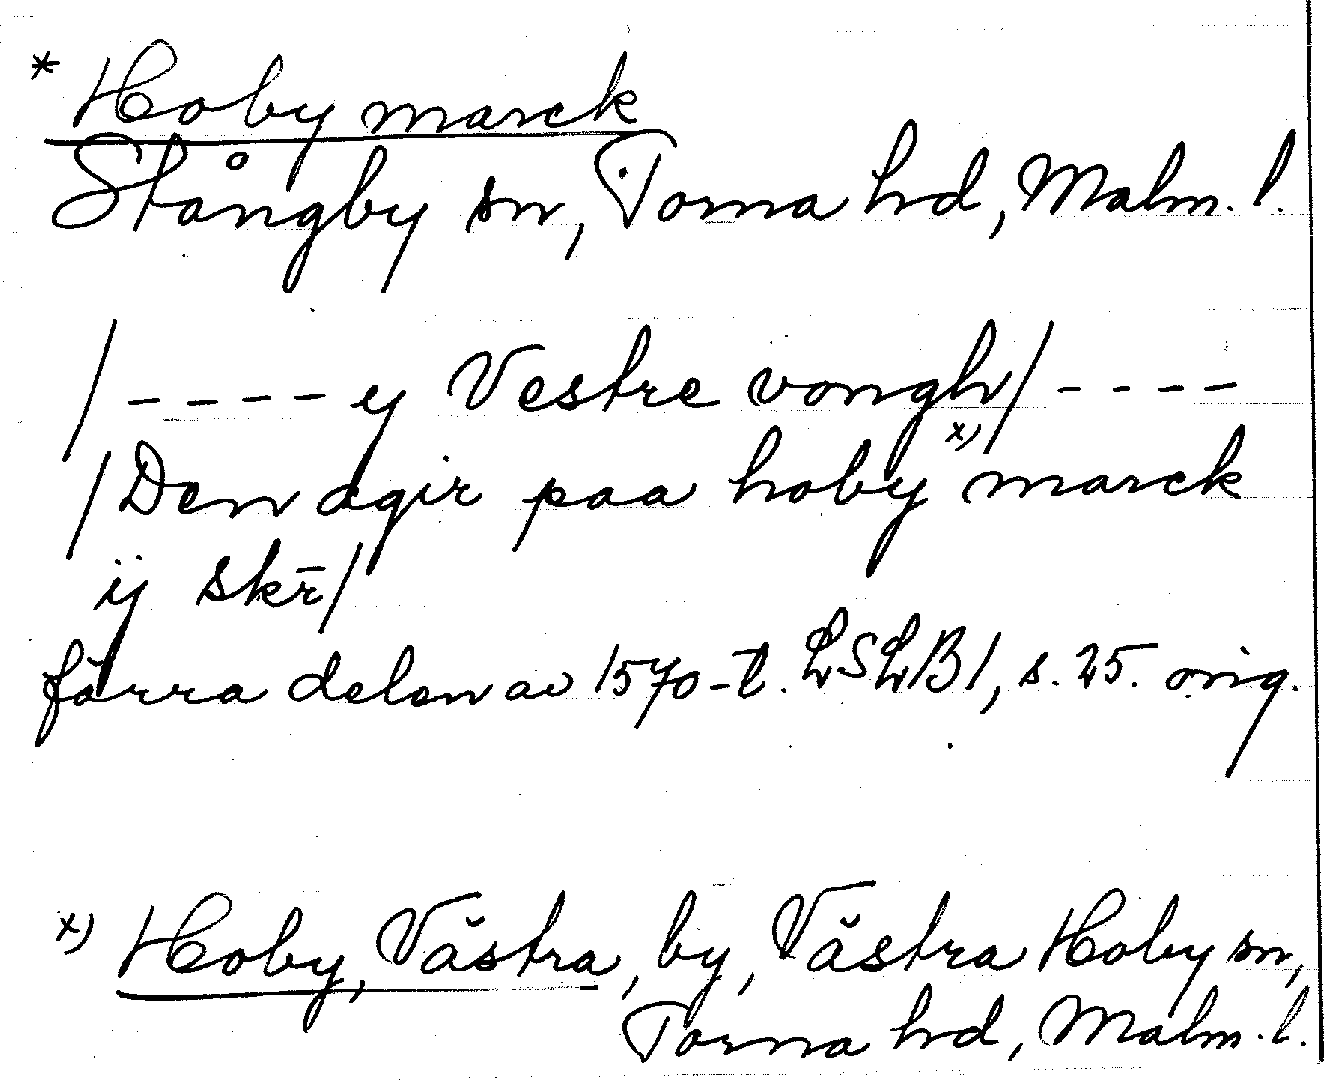 * Hoby marck
Stångby sn, Torna hd, Malm. l.
/ - - - - y Vestre vongh/ - - - -
/Den agir paa hoby x) marck
ij skr̄/
förra delen av 1570-t. LSLB1, s. 25. orig.
x) Hoby, Västra, by, Västra Hoby sn,
Torna hd, Malm. l.